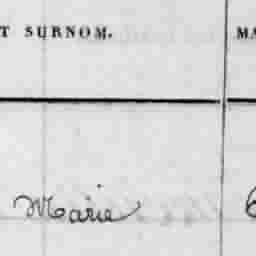 T SURNOM. MA
Marie 6